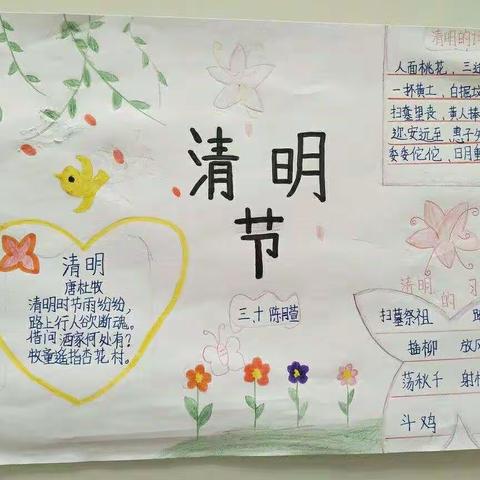 清明节
清明
唐杜牧
清明时节雨纷纷,
路上行人欲断魂。
借问酒家何处有?
牧童遥指杏花村。
三、十 陈月萱
清明的
人面桃花,三
一杯黄土,白掘
扫墓里丧,黄人
迩安远至 惠子
委委佗佗,日月
清明的 习
扫墓祭祖
插柳 放风
荡秋千 射
斗鸡